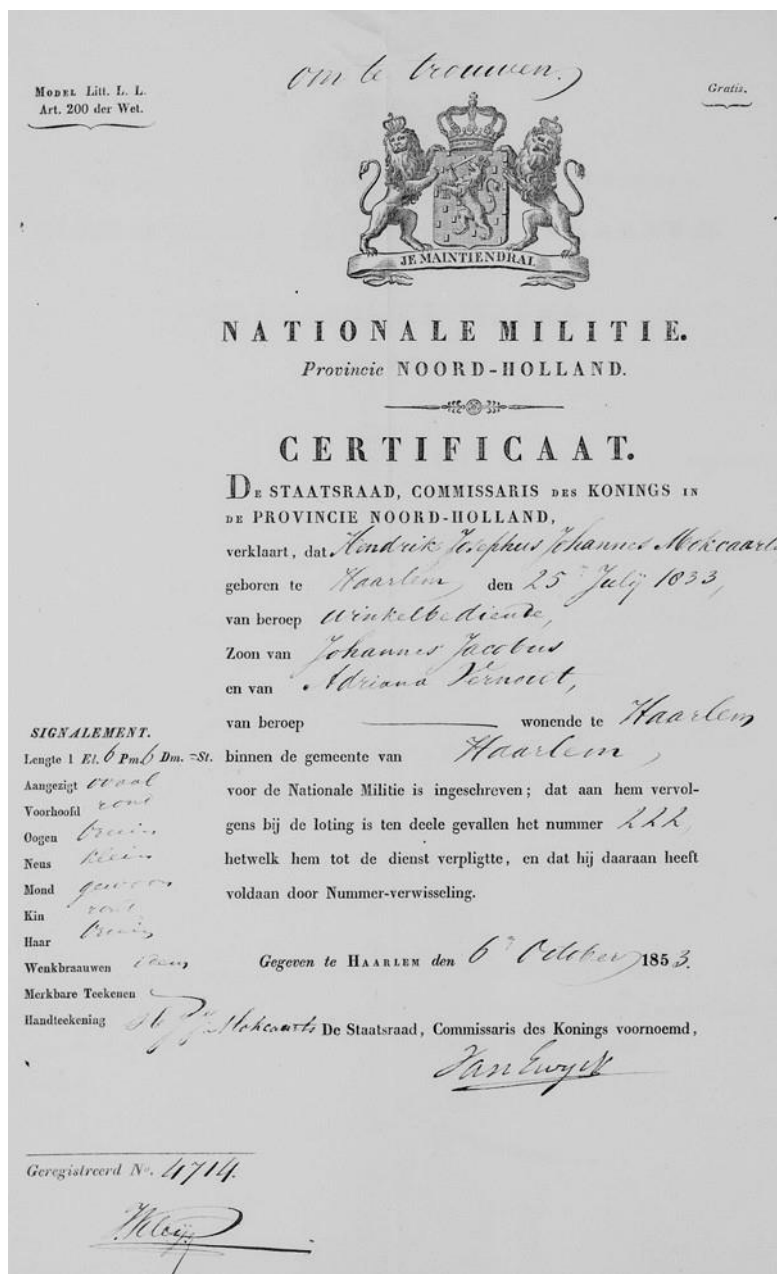 om te trouwen.
MODEL Litt. L. L.
Art. 200 der Wet.
Gratis.
JE MAINTIENDRAI
NATIONALE MILITIE.
Provincie NOORD-HOLLAND.
CERTIFICAAT.
DE STAATSRAAD, COMMISSARIS DES KONINGS IN
DE PROVINCIE NOORD-HOLLAND,
verklaart, dat Hendrik Josephus Johannes
geboren te Haarlem, den 25 Julij 1833,
van beroep Winkelbediende,
Zoon van Johannes Jacobus
en van Adriana Vernout,
van beroep wonende te Haarlem
binnen de gemeente van Haarlem,
voor de Nationale Militie is ingeschreven; dat aan hem vervol-
gens bij de loting is ten deele gevallen het nummer 222,
hetwelk hem tot de dienst verpligtte, en dat hij daaraan heeft
voldaan door Nummer-verwisseling.
Gegeven te HAARLEM den 6 October 1853.
De Staatsraad, Commissaris des Konings voornoemd,
Van Ewyck
SIGNALEMENT.
Lengte 1 El. 6 Pm. 6 Dm. = St.
Aangezigt ovaal
Voorhoofd rond
Oogen bruin
Neus klein
Mond gewoon
Kin rond
Haar bruin
Wenkbraauwen idem
Merkbare Teekenen
Handteekening
Geregistreerd No. 4714.